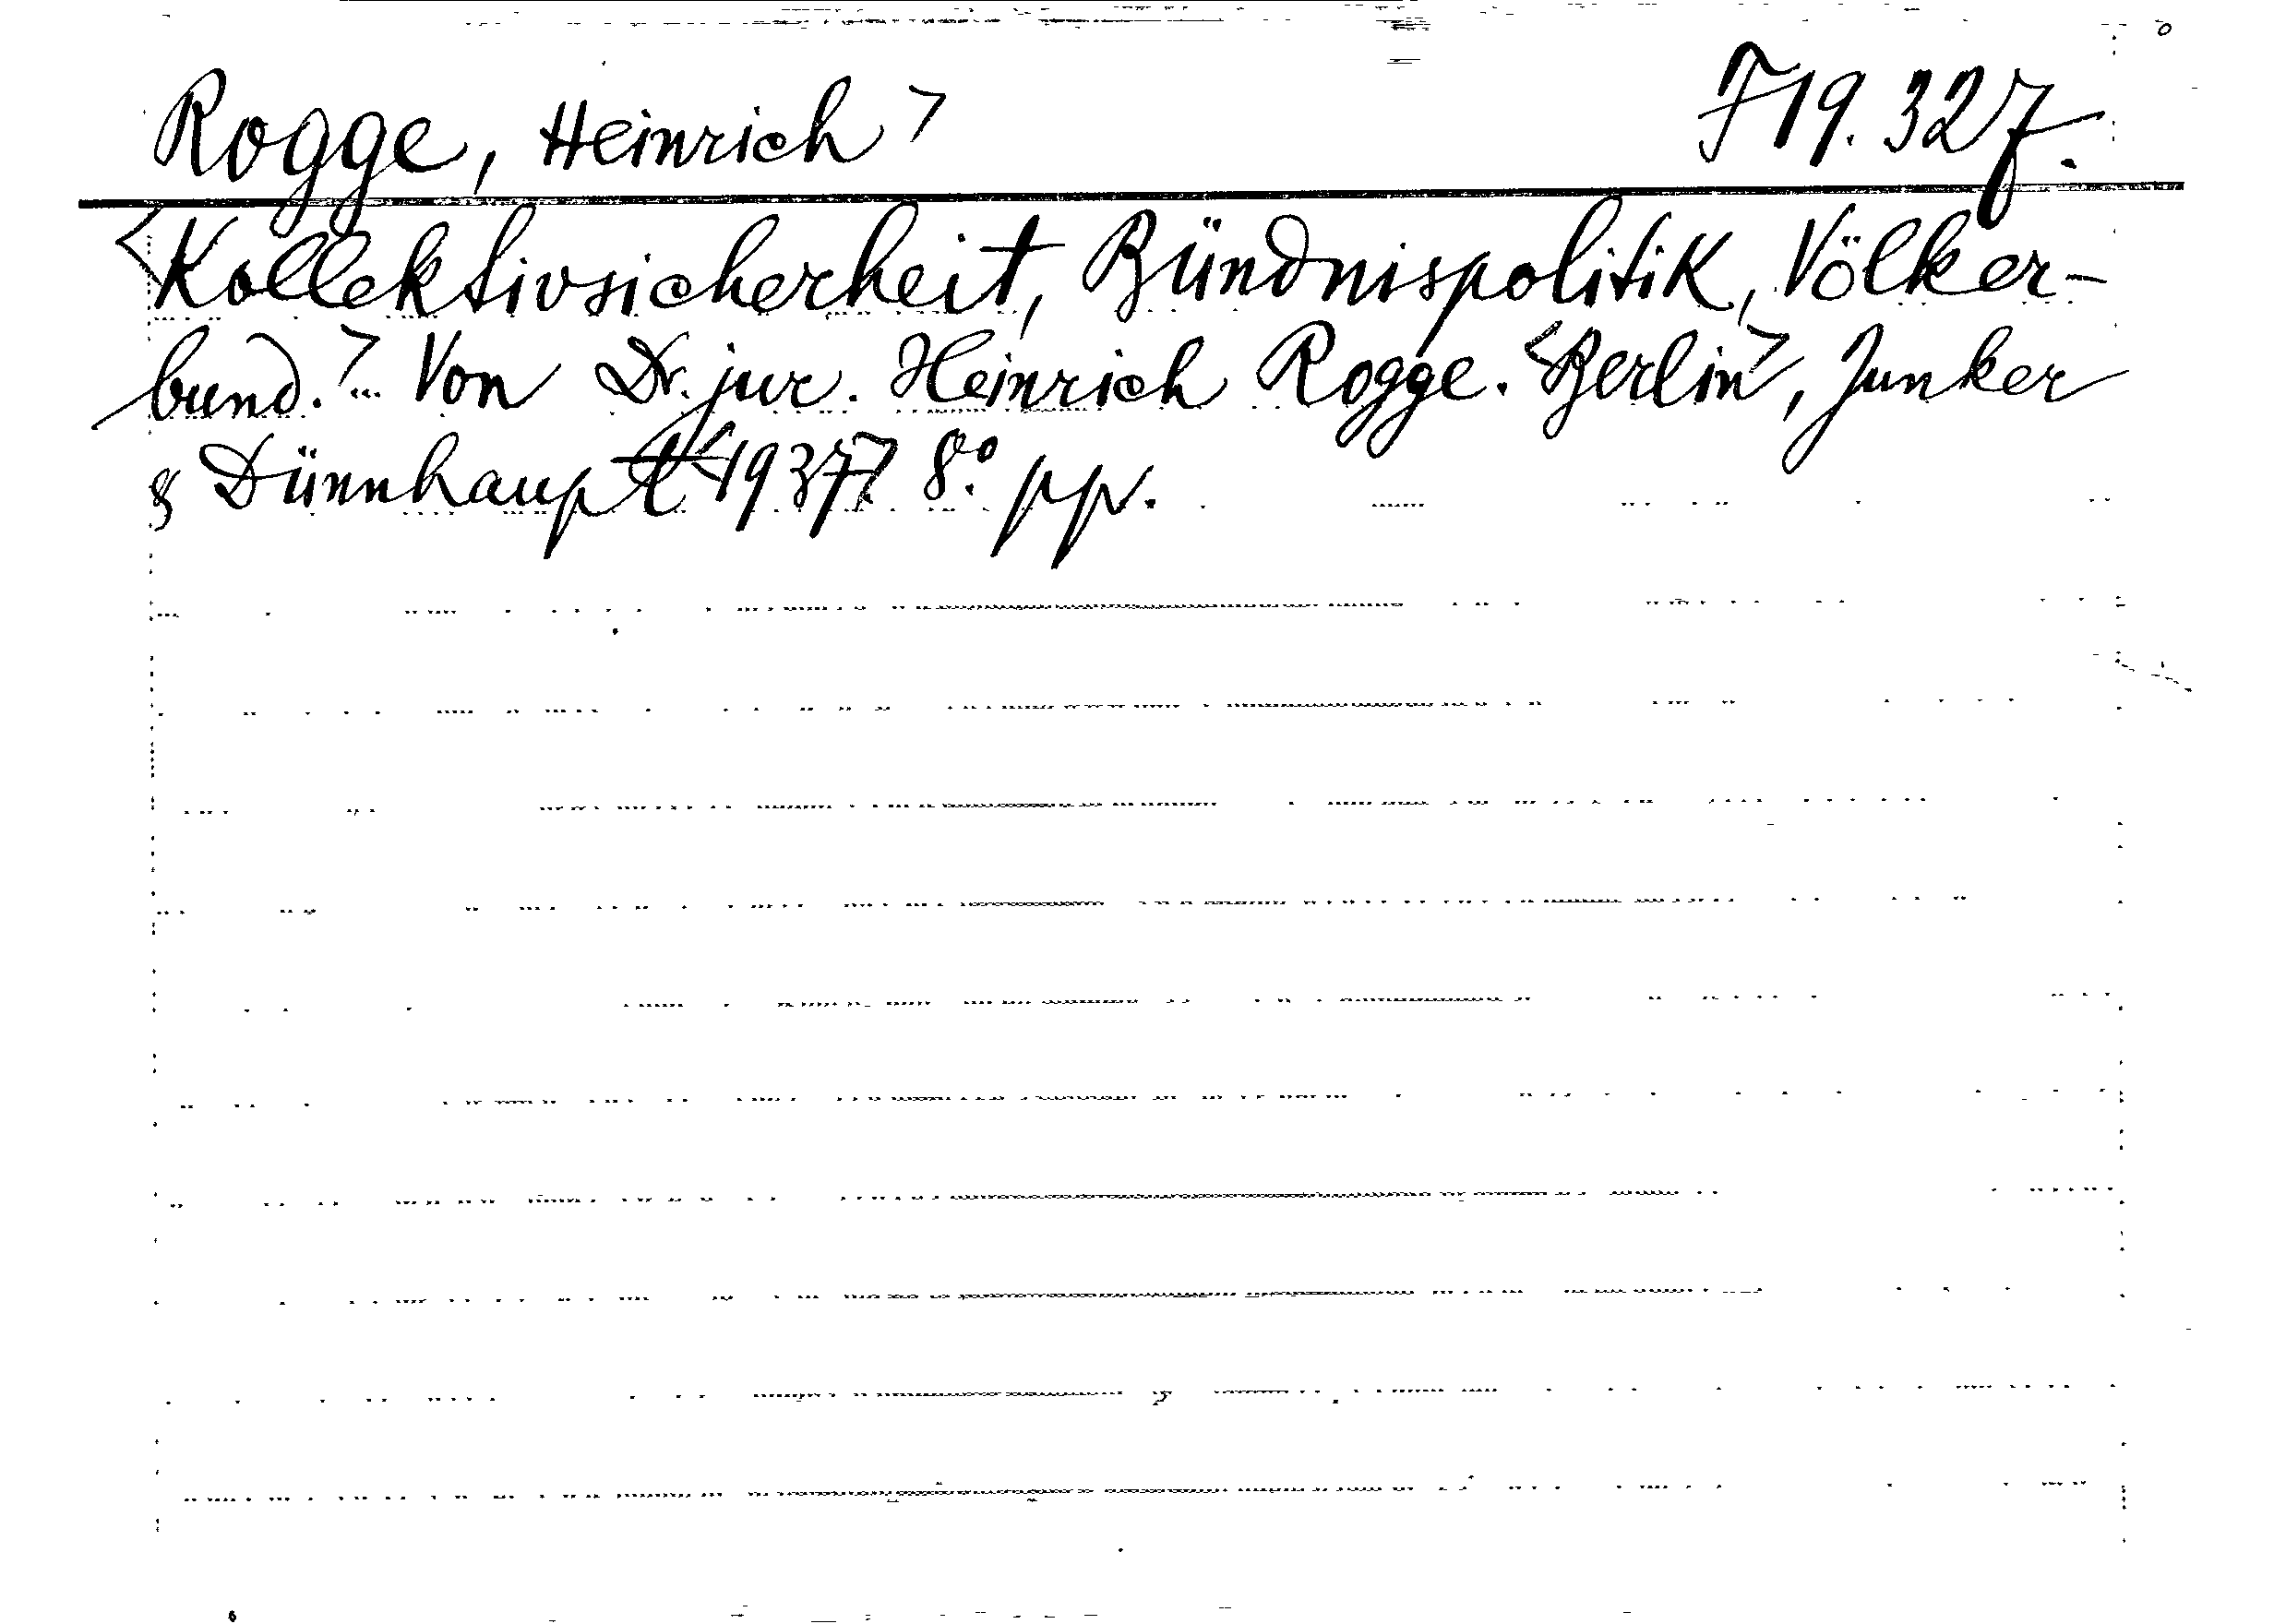 Rogge, Heinrich> 719.327.
<Kollektivsicherheit, Bündnispolitik, Völker-
bund.>... Von Dr. jur. Heinrich Rogge. <Berlin>, Junker
& Dünnhaupt <1937> 8.° pp.